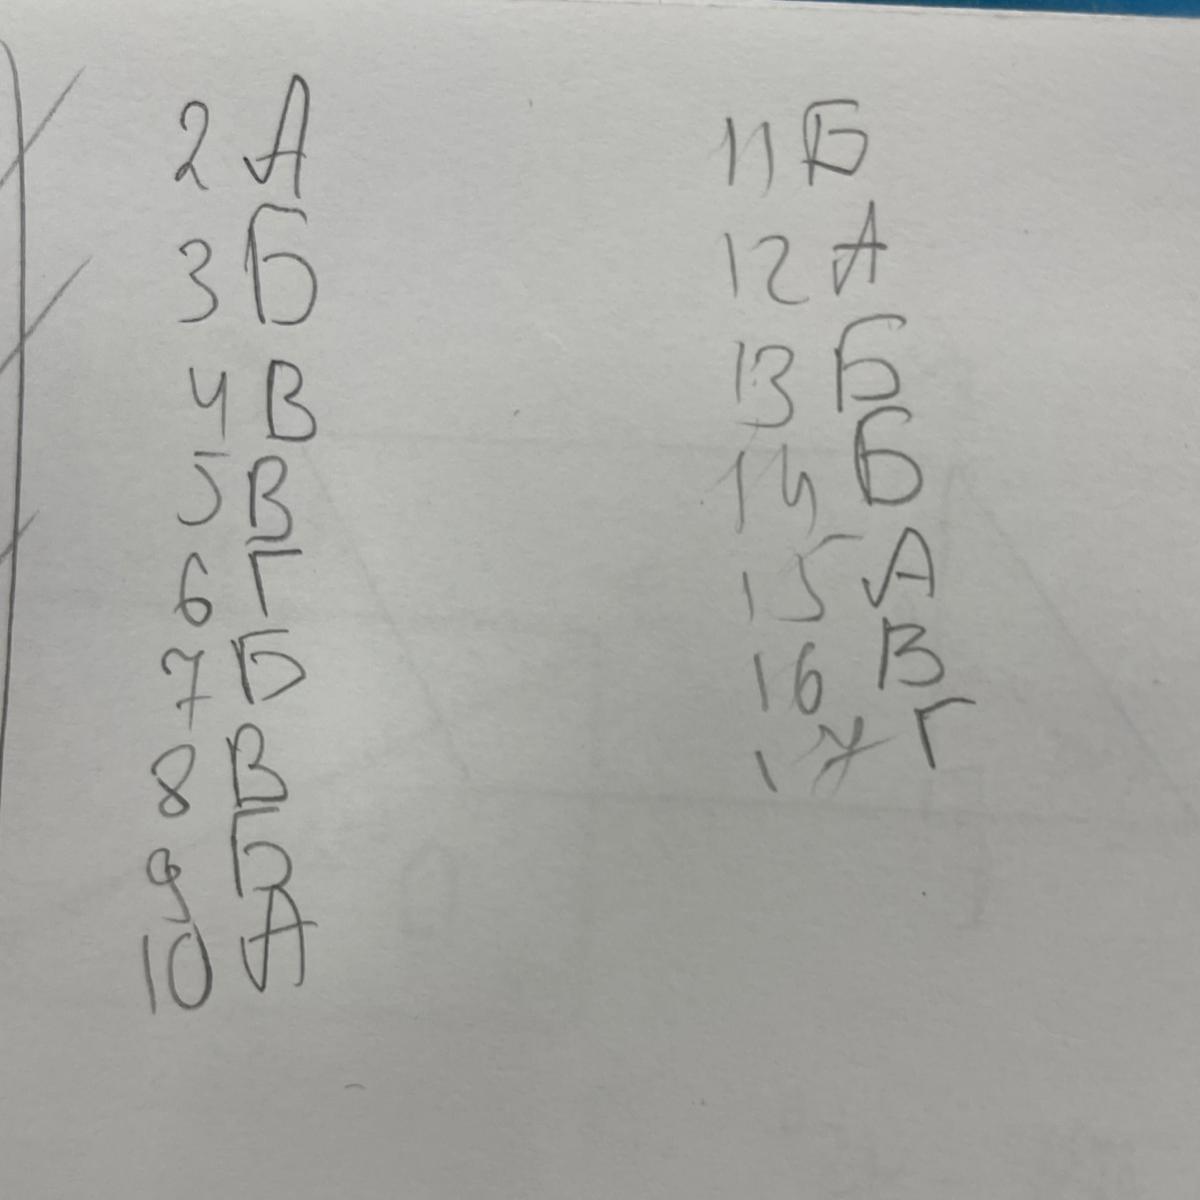 2 А
3 Б
4 В
5 В
6 Г
7 Б
8 В
9 Б
10 А
11 Б
12 А
13 Б
14 Б
15 А
16 В
17 Г